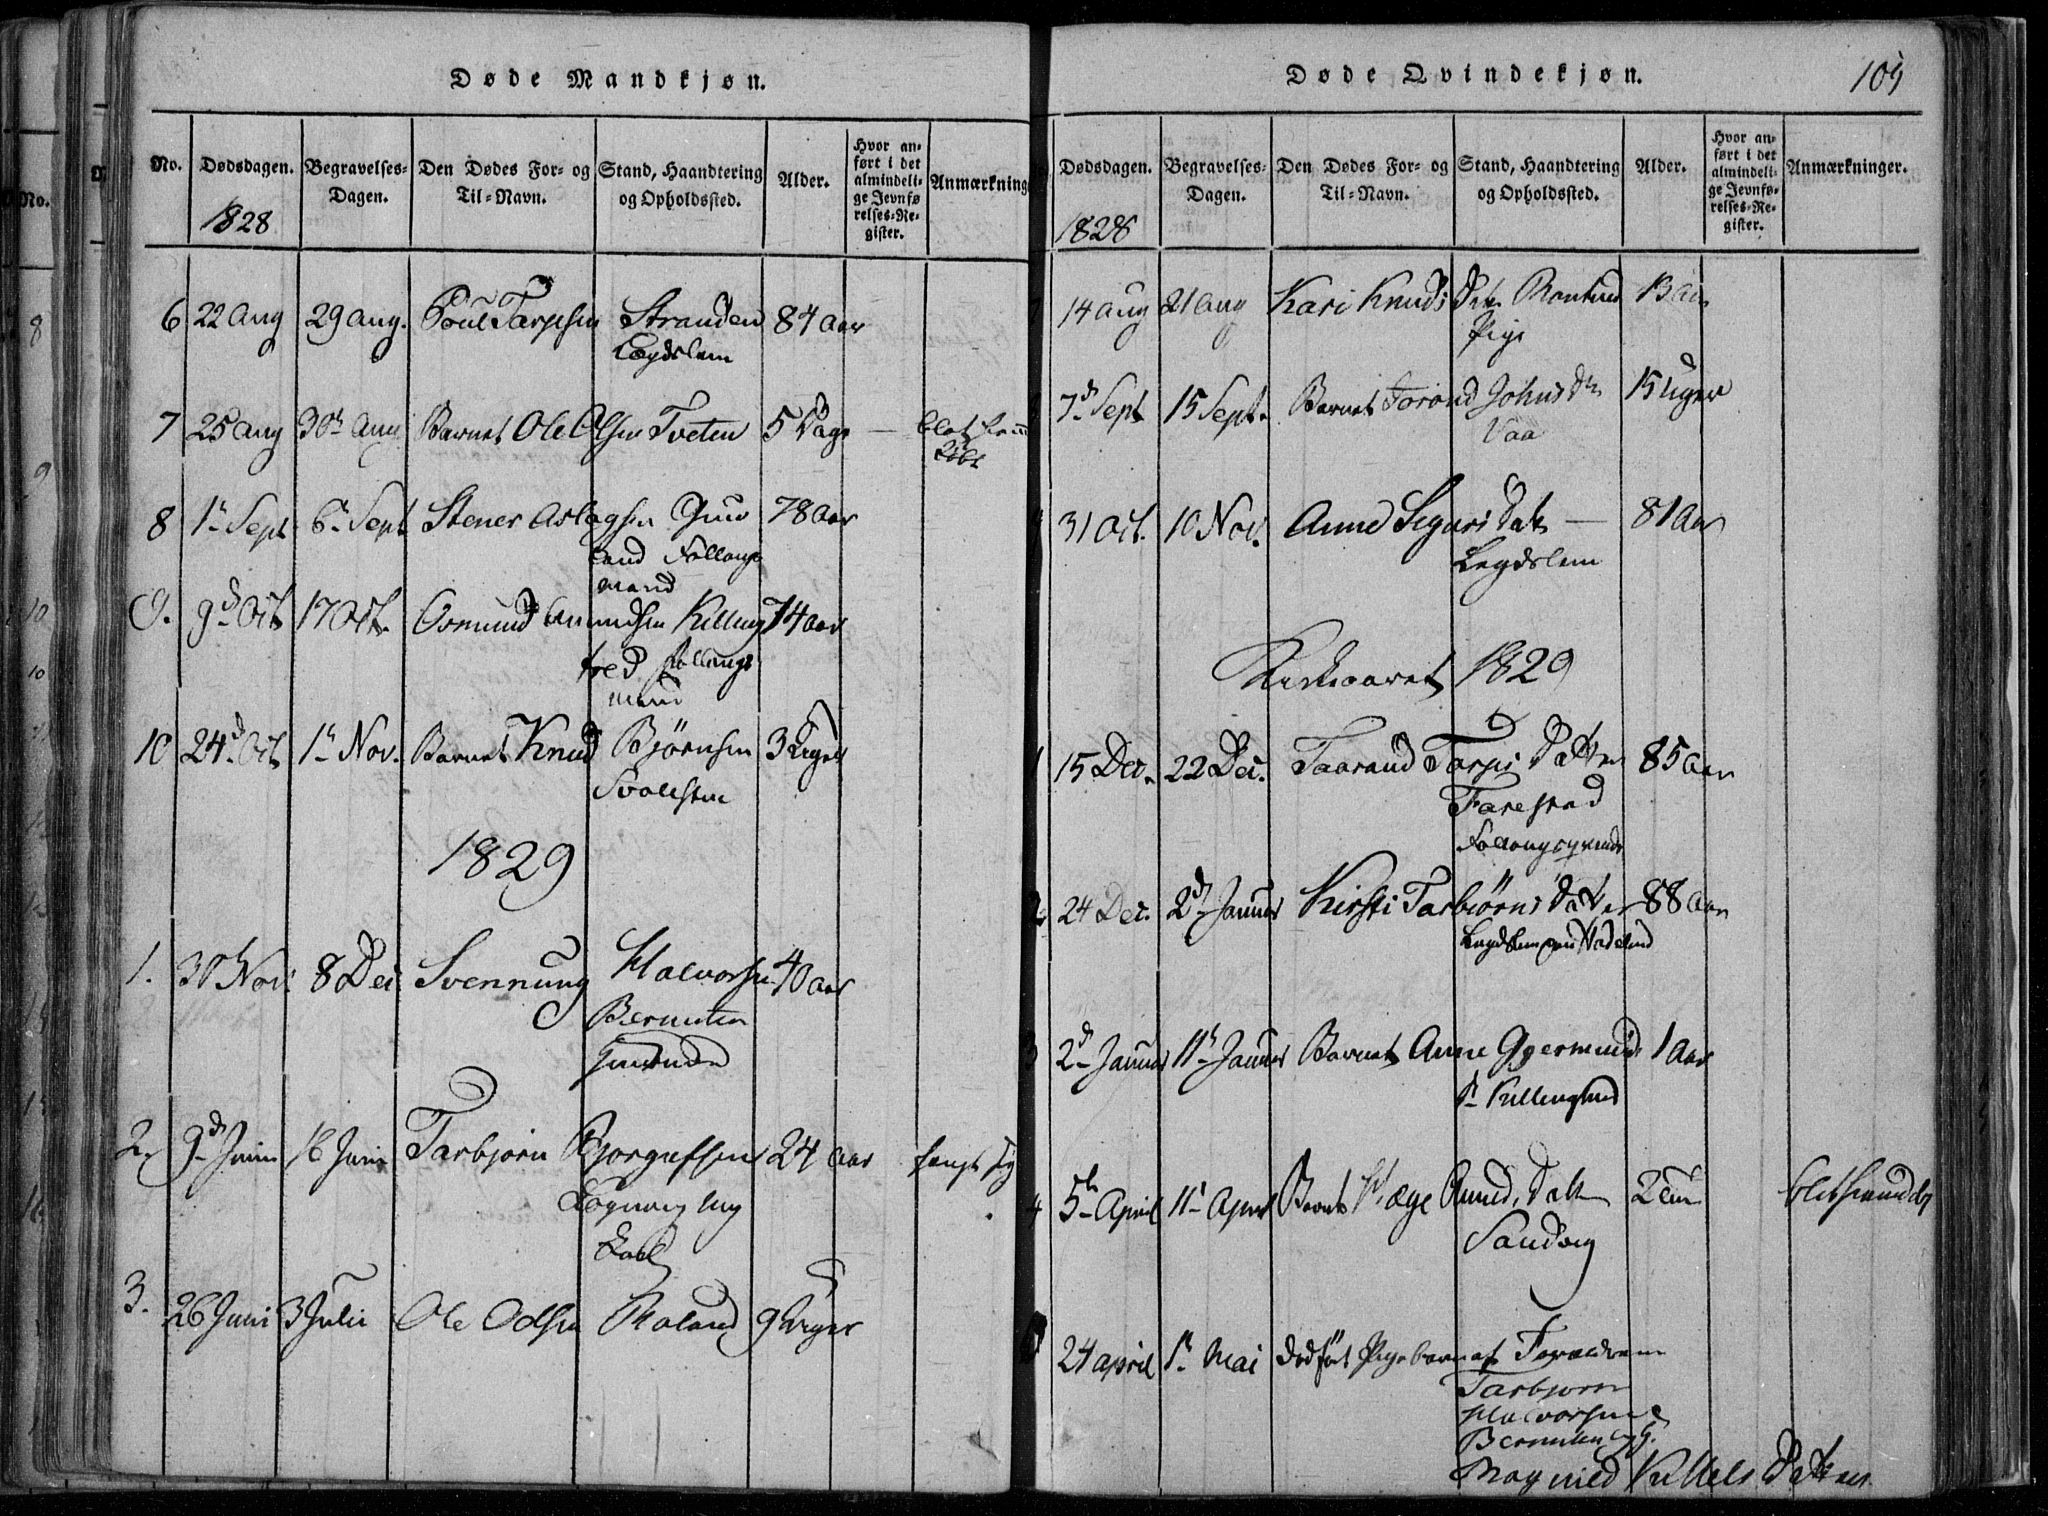 Døde Mandkjøn.
No.
Dødsdagen.
Begravelses-
Dagen.
Den Dødes For- og
Til-Navn.
Stand, Haandtering
og Opholdssted.
Alder.
Hvor an-
ført i det
almindeli-
ge Jevnfø
relses-Re-
gister.
Anmærkning
1828
6 22 Aug 29 Aug. Poul Tarjesen Stranden 84 Aar
Legdslem
7 25 Aug 30 Aug Barnet Ole Olsen Tveten 5 Dage
8 1 Sept 6 Sept Stener Aslagsen 78 Aar
land Follaugs
mand
9. 9d Oct 17 Oct. Osmund Amundsen Killing 74 Aar
tred Follaugs
mand
10 24d Oct 1 Nov. Barnet Knud Bjørnsen 3 Uger
1829
1. 30 Nov. 8 Dec Svennung Halvorsen 40 Aar
Bernuten
2. 9d Juni 16 Juni Tarbjørn Bjorgufsen 24 Aar
3. 26 Juni 3 Julii Ole Olsen Roland 9 Uger
Døde Qvindekjøn.
109
Dødsdagen.
Begravelses-
Dagen.
Den Dødes For- og
Til-Navn.
Stand, Haandtering
og Opholdssted.
Alder.
Hvor an-
ført i det
almindeli-
ge Jevnfø-
relses-Re-
gister.
Anmærkninger.
1828
14 Aug 21 Aug Kari Knuds Dat
Pige
7d Sept 15 Sept. Barnet Torond Johns Dtr 15 Uger
Vaa
31 Oct. 10 Nov. Anne Sigurs Datr 81 Aar
Legdslem
Kirkeaaret 1829
1 15 Dec. 22 Dec. Taarand Tarjes Datter 85 Aar
2 24 Dec. 2d Januar Kirsti Tarbiørns Datter 88 Aar
Legdslem
3 2d Januar 11 Januar Barnet Anne Gjermunds 1 Aar
4 5 April 11 April Barnet Hæge Amunds Datter
Sandvig
24 April 1 Mai dødfødt Pigebarnet Forældrene
Tarbjørn
Halvorsen
Bernuten og
Kittels Datter